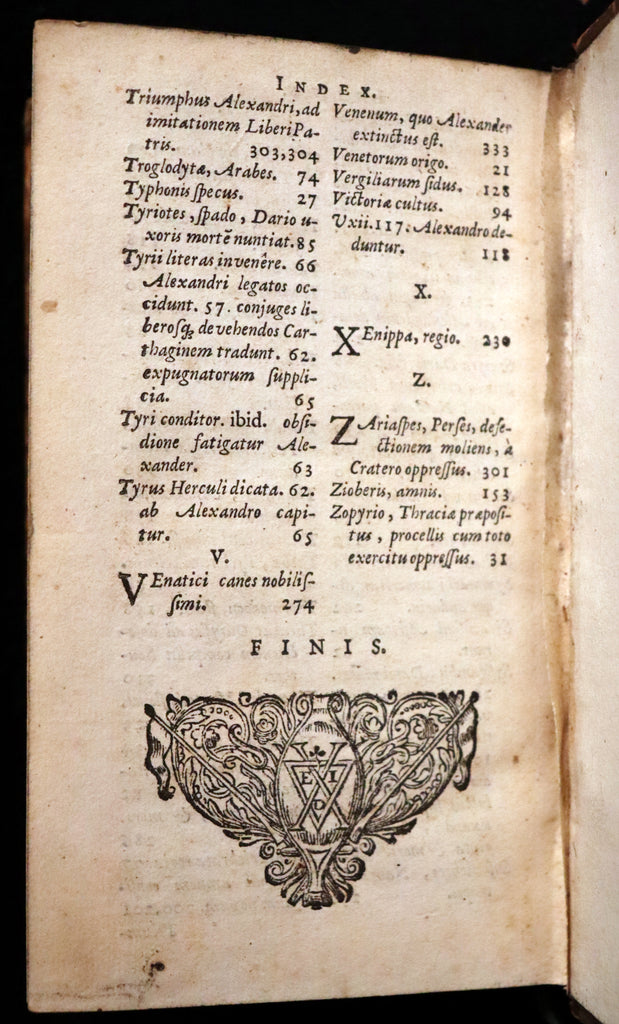 INDEX.
Triumphus Alexandri, ad
imitationem Liberi Pa-
tris. 303,304
Troglodytæ, Arabes. 74
Typhonis ſpecus. 27
Tyriotes, ſpado, Dario u-
xoris mortē nuntiat. 85
Tyrii literas invenêre. 66
Alexandri legatos oc-
cidunt. 57. conjuges li-
beroſq; devehendos Car-
thaginem tradunt. 62.
expugnatorum ſuppli-
cia. 65
Tyri conditor. ibid. obſi-
dione fatigatur Ale-
xander. 63
Tyrus Herculi dicata. 62.
ab Alexandro capi-
tur. 65
V.
VEnatici canes nobiliſ-
ſimi. 274
Venenum, quo Alexander
extinctus eſt. 333
Venetorum origo. 21
Vergiliarum ſidus. 128
Victoriæ cultus. 94
Vxii. 117. Alexandro de-
duntur. 118
X.
XEnippa, regio. 230
Z.
ZAriaſpes, Perſes, defe-
ctionem moliens, à
Cratero oppreſſus. 301
Zioberis, amnis. 153
Zopyrio, Thraciæ præpoſi-
tus, procellis cum toto
exercitu oppreſſus. 31
FINIS.
E I
D